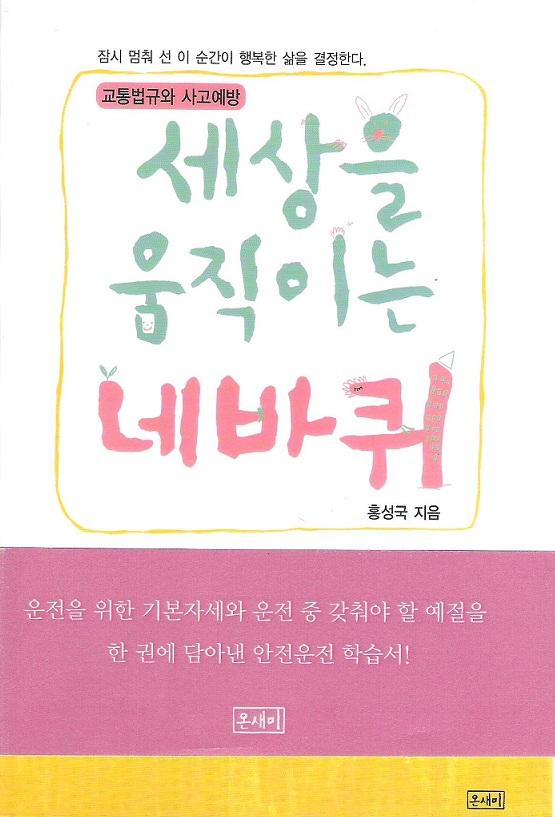 잠시 멈춰 선 이 순간이 행복한 삶을 결정한다.
교통법규와 사고예방
세상을
움직이는
네바퀴
홍성국 지음
운전을 위한 기본자세와 운전 중 갖춰야 할 예절을
한 권에 담아낸 안전운전 학습서!
온새미
온새미